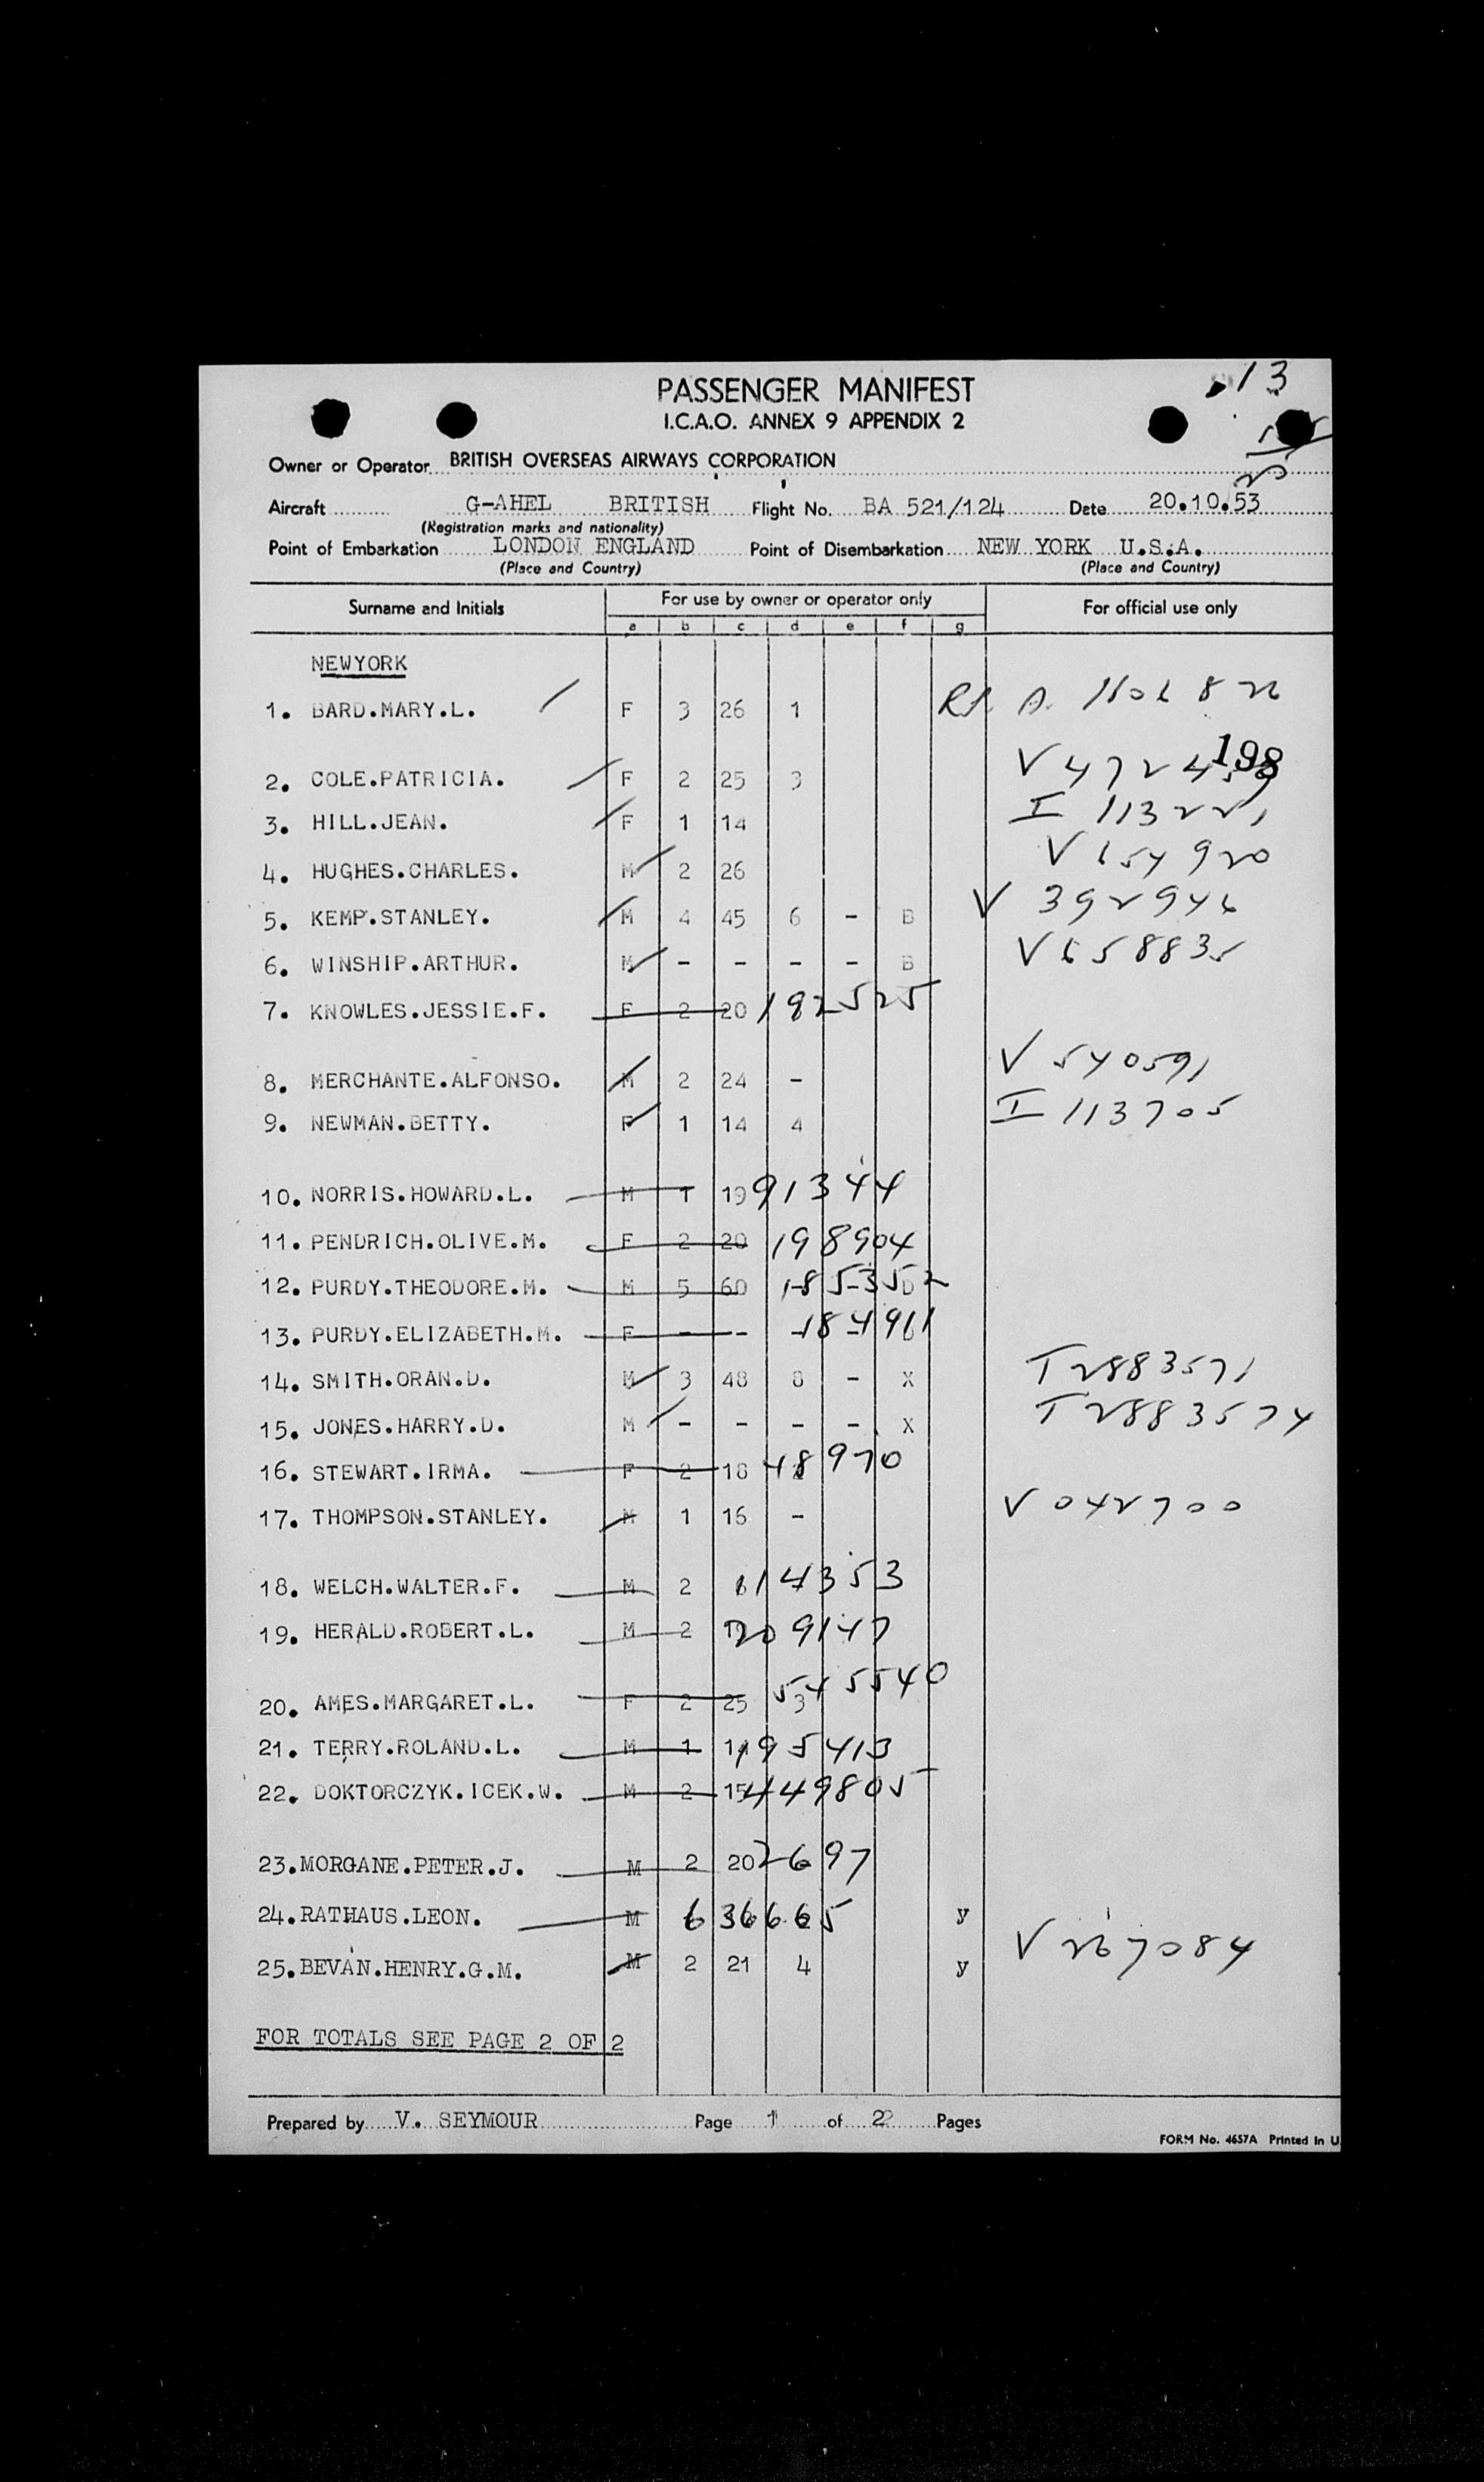 13
PASSENGER MANIFEST
I.C.A.O. ANNEX 9 APPENDIX 2
Owner or Operator BRITISH OVERSEAS AIRWAYS CORPORATION
Aircraft G-AHEL BRITISH Flight No. BA 521/124 Date 20.10.53
(Registration marks and nationality)
Point of Embarkation LONDON ENGLAND Point of Disembarkation NEW YORK U.S.A.
(Place and Country) (Place and Country)
Surname and Initials For use by owner or operator only For official use only
a b c d e f g
NEWYORK
1. BARD.MARY.L. F 3 26 1
198
2. COLE.PATRICIA. F 2 25 3
3. HILL.JEAN. F 1 14 I 113221
4. HUGHES.CHARLES. M 2 26 V 654920
5. KEMP.STANLEY. M 4 45 6 - B V 392946
6. WINSHIP.ARTHUR. M - - - - B V 658835
7. KNOWLES.JESSIE.F. F 2 20 192525
8. MERCHANTE.ALFONSO. M 2 24 - V 540591
9. NEWMAN.BETTY. F 1 14 4 I 113705
10. NORRIS.HOWARD.L. M 1 19 91344
11. PENDRICH.OLIVE.M. F 2 20 198904
12. PURDY.THEODORE.M. M 5 60 185352
13. PURDY.ELIZABETH.M. F - - 184961
14. SMITH.ORAN.D. M 3 48 8 - X T 2883571
15. JONES.HARRY.D. M - - - - X T 2883574
16. STEWART.IRMA. F 2 18 48970
17. THOMPSON.STANLEY. M 1 16 - V 042700
18. WELCH.WALTER.F. M 2 614353
19. HERALD.ROBERT.L. M 2 209147
20. AMES.MARGARET.L. F 2 25 3 545540
21. TERRY.ROLAND.L. M 1 14 195413
22. DOKTORCZYK.ICEK.W. M 2 15 449805
23. MORGANE.PETER.J. M 2 20 2697
24. RATHAUS.LEON. M 636665 y
25. BEVAN.HENRY.G.M. M 2 21 4 y V 267084
FOR TOTALS SEE PAGE 2 OF 2
Prepared by V. SEYMOUR Page 1 of 2 Pages
FORM No. 4657A Printed in U